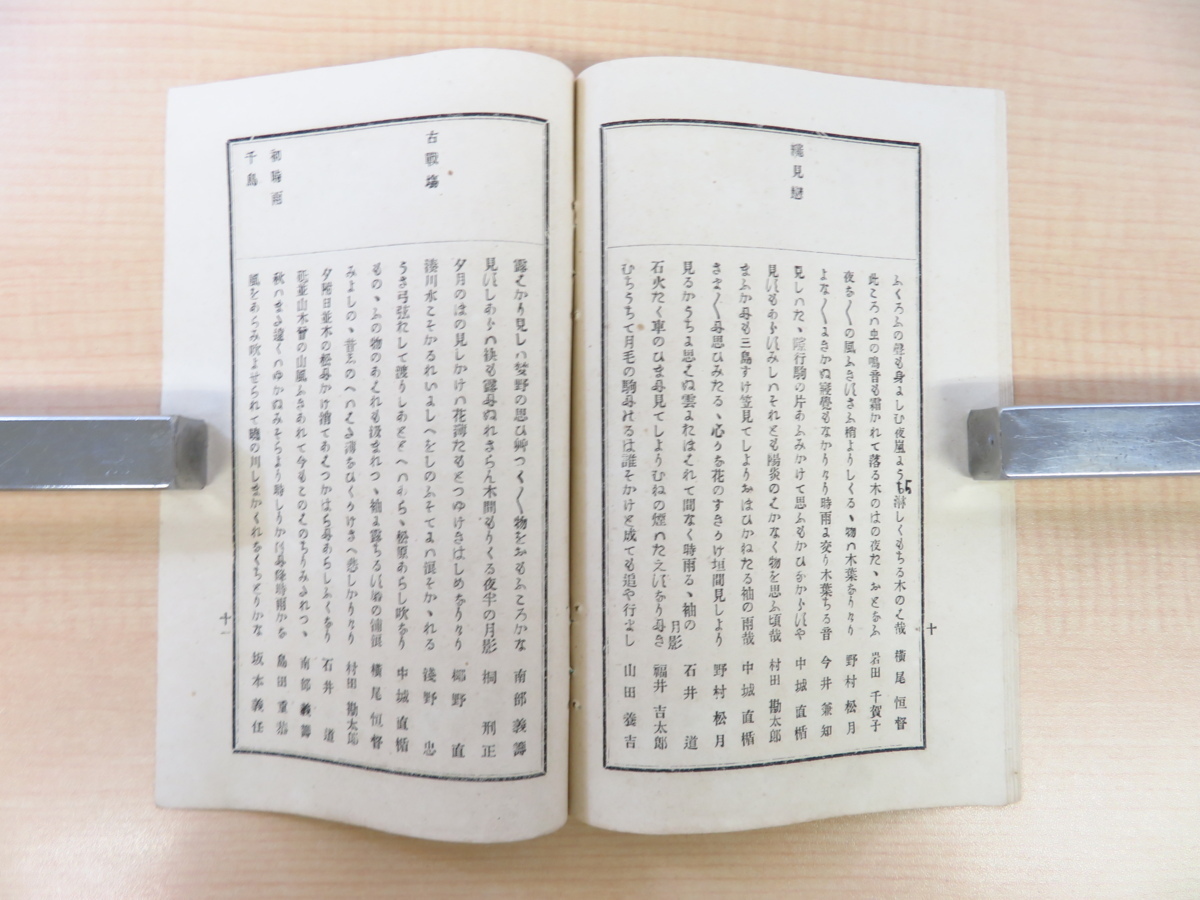 ふくろふの聲も身よしむ夜嵐ようち淋しくもちる木のは哉 橫尾恒督
此ころハ虫の鳴音も霜かれて落る木のはの夜たゝおとなふ 岩田千賀子
夜な〱の風ふきすさふ梢よりしくるゝ物ハ木葉なりけり 野村松月
よな〱まきかぬ寢覺もなかりけり時雨ま交り木葉ちる音 今井兼知
見しハたゝ行駒の片あふみかけて思ふもかひなからすや 中城直楯
見すもあらすみしハそれとも陽炎のはかなく物を思ふ頃哉 村田勘太郎
まふかにも三島すけ笠見てしよりおはひかねたる袖の雨哉 中城直楯
さま〱に思ひみたるゝ心かな花のすきかけ垣間見しより 野村松月
見るかうちま思はぬ雲まれはくれて間なく時雨るゝ袖の月影 石井道
石火たく車のひまに見てしよりむねの煙ハたえすなりにき 福井吉太郎
むちうちて月毛の駒にけるは誰そかけと成ても追や行まし 山田養吉
見戀
十
古戰場
露はかり見しハ夢野の思ひ艸つく〱物をおもふころかな 南部義籌
見すしあらハ後も露にぬれさらん木間もりくる夜半の月影 桐刑正
夕月のはの見しかけハ花薄たもとつゆけきはしめなりけり 野直
湊川水こそかるれいよしへをしのふそてまハ浪そかゝれる 淺野忠
うき弓弦れして渡りしあととへハあらゝ松原あらし吹なり 中城直楯
ものゝふの物のあはれも汲まれつゝ袖ま露ちるすまの浦浪 橫尾恒督
みよしのゝ昔志のへハはな薄なひくかけさへ悲しかりけり 村田勘太郎
夕附日並木の松にかけ消てあはつかはらにあらしふくなり 石井道
並山木曾の山風ふきあれて今もこのはのちりみたれつゝ 南部義籌
初時雨
秋ハまた遠くハゆかぬみそらより時しりかほに降時雨かな 島田重恭
千鳥
風をあらみ吹よせられて磯の川しまかくれなくちとりかな 坂本義任
十一